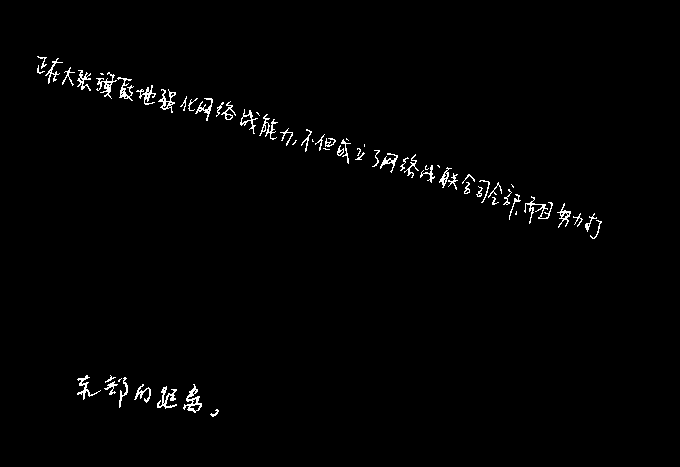 正在大张旗鼓地强化网络战能力,不但成立了网络战联合司令部,而且努力打
东部的距离。